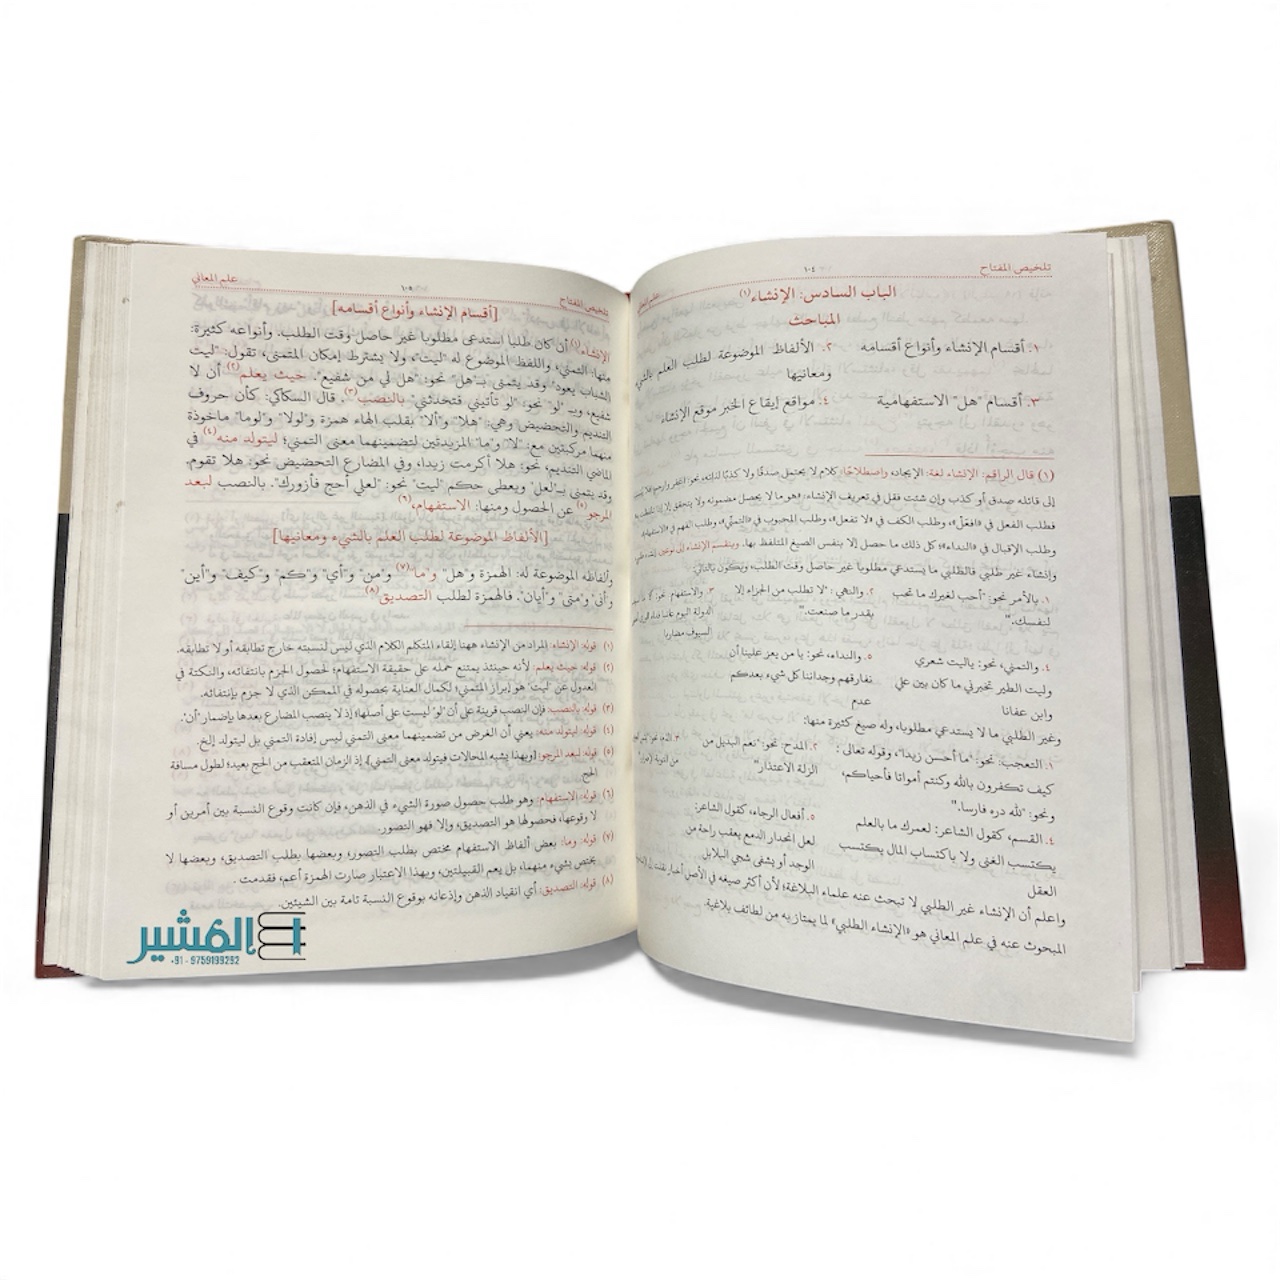 تلخيص المفتاح
١٠٤
الباب السادس: الإنشاء(١)
المباحث
١. أقسام الإنشاء وأنواع أقسامه
٢. الألفاظ الموضوعة لطلب العلم
ومعانيها
٣. أقسام "هل" الاستفهامية
٤. مواقع إيقاع الخبر موقع الإنشاء
(١) قال الراقم: الإنشاء لغة: الإيجاد، واصطلاحًا: كلام لا يحتمل صدقًا ولا كذبًا لذاته، نحو: اغفر وارحم، فلا
إلى قائله صدق أو كذب وإن شئت فقل في تعريف الإنشاء: «هو ما لا يحصل مضمونه ولا يتحقق إلا إذا
فطلب الفعل في «افعل»، وطلب الكف في «لا تفعل»، وطلب المحبوب في «التمني»، وطلب الفهم في «الاستفهام»
وطلب الإقبال في «النداء»؛ كل ذلك ما حصل إلا بنفس الصيغ المتلفظ بها. وينقسم الإنشاء إلى نوعين
وإنشاء غير طلبي فالطلبي ما يستدعي مطلوبا غير حاصل وقت الطلب، ويكون
١. بالأمر نحو: "أحب لغيرك ما تحب
لنفسك."
٢. والنهي: "لا تطلب من الجزاء إلا
بقدر ما صنعت."
٣. والاستفهام نحو:
السيوف مضاربا
٤. والتمني، نحو: ياليت شعري
وليت الطير تخبرني ما كان بين علي
وابن عفانا
٥. والنداء، نحو: يا من يعز علينا أن
نفارقهم وجداننا كل شيء بعدكم
عدم
وغير الطلبي ما لا يستدعي مطلوبا، وله صيغ كثيرة منها:
١. التعجب: نحو: "ما أحسن زيدا"، وقوله تعالى:
كيف تكفرون بالله وكنتم أمواتا فأحياكم،
ونحو: "لله دره فارسا."
٢. المدح، نحو: "نعم البديل من
الزلة الاعتذار"
٤. القسم، كقول الشاعر: لعمرك ما بالعلم
يكتسب الغنى ولا باكتساب المال يكتسب
العقل
٥. أفعال الرجاء، كقول الشاعر:
لعل انحدار الدمع يعقب راحة من
الوجد أو يشفي شجي البلابل
واعلم أن الإنشاء غير الطلبي لا تبحث عنه علماء البلاغة؛ لأن أكثر صيغه في الأصل أخبار نقلت إلى
المبحوث عنه في علم المعاني هو «الإنشاء الطلبي» لما يمتاز به من لطائف بلاغية.
تلخيص المفتاح
١٠٥
علم المعاني
[أقسام الإنشاء وأنواع أقسامه]
الإنشاء(١) أن كان طلبا استدعى مطلوبا غير حاصل وقت الطلب. وأنواعه كثيرة:
منها: التمني، واللفظ الموضوع له "ليت"، ولا يشترط إمكان المتمنى، تقول: "ليت
الشباب يعود" وقد يتمنى بـ"هل" نحو: "هل لي من شفيع". حيث يعلم(٢) أن لا
شفيع، وبـ "لو" نحو: "لو تأتيني فتحدثني" بالنصب(٣). قال السكاكي: كأن حروف
التنديم والتحضيض وهي: "هلا" و"ألا" بقلب الهاء همزة و"لولا" و"لوما" ماخوذة
منهما مركبتين مع: "لا" و"ما" المزيدتين لتضمينهما معنى التمني؛ ليتولد منه(٤) في
الماضي التنديم، نحو: هلا أكرمت زيدا، وفي المضارع التحضيض نحو: هلا تقوم.
وقد يتمنى بـ"لعل" ويعطى حكم "ليت" نحو: "لعلي أحج فأزورك". بالنصب لبعد
المرجو(٥) عن الحصول ومنها: الاستفهام،(٦)
[الألفاظ الموضوعة لطلب العلم بالشيء ومعانيها]
وألفاظه الموضوعة له: الهمزة و"هل" و"ما"(٧) و"من" و"أي" و"كم" و"كيف" و"أين"
و"أنى" و"متى" و"أيان". فالهمزة لطلب التصديق(٨)
(١) قوله: الإنشاء: المراد من الإنشاء ههنا إلقاء المتكلم الكلام الذي ليس لنسبته خارج تطابقه أو لا تطابقه.
(٢) قوله: حيث يعلم: لأنه حينئذ يمتنع حمله على حقيقة الاستفهام؛ لحصول الجزم بانتفائه، والنكتة في
العدول عن "ليت" هو إبراز المتمنى؛ لكمال العناية بحصوله في الممكن الذي لا جزم بإنتفائه.
(٣) قوله: بالنصب: فإن النصب قرينة على أن "لو" ليست على أصلها؛ إذ لا ينصب المضارع بعدها بإضمار "أن".
(٤) قوله: ليتولد منه: يعني أن الغرض من تضمينهما معنى التمني ليس إفادة التمني بل ليتولد إلخ.
(٥) قوله: لبعد المرجو [وبهذا يشبه المحالات فيتولد معنى التمني]، إذ الزمان المتعقب من الحج بعيد؛ لطول مسافة
الحج
(٦) قوله: الاستفهام: وهو طلب حصول صورة الشيء في الذهن، فإن كانت وقوع النسبة بين أمرين أو
لا وقوعها، فحصولها هو التصديق، وإلا فهو التصور.
(٧) قوله: وما: بعض ألفاظ الاستفهام مختص بطلب التصور؛ وبعضها بطلب التصديق، وبعضها لا
يختص بشيء منهما، بل يعم القبيلتين، وبهذا الاعتبار صارت الهمزة أعم، فقدمت.
(٨) قوله: التصديق: أي انقياد الذهن وإذعانه بوقوع النسبة تامة بين الشيئين.
المشير
+91 - 9759199292